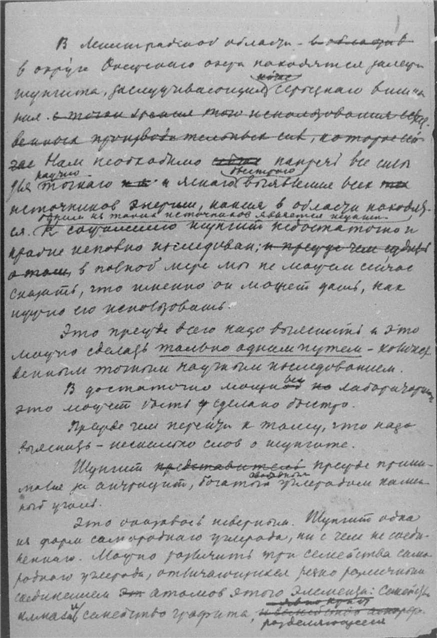 В Ленинградской области - в области в
в округе Онежского озера находятся залежи
ныне
шунгита, заслуживающие серьезного внима
ния с точки зрения того использования естест
венных производительных сил, которое сей
час Нам необходимо напречь все силы
научно быстрого
для точного и ясного выявления всех
источников энергии, какия в области находят
Одним из таких источников является шунгит
ся. К сожалению шунгит недостаточно и
крайне неполно исследован; и прежде чем судить
о том, в полной мере мы не можем сейчас
сказать, что именно он может дать, как
нужно его использовать.
Это прежде всего надо выяснить и это
можно сделать только одним путем -
венным точным научным исследованием.
В достаточно мощной лаборатории
это может быть сделано быстро.
Прежде чем перейти к тому, что надо
выяснить - несколько слов о шунгите.
Шунгит представитель прежде прини-
мали за антрацит, богатый углеродом камен
ный уголь.
Это оказалось неверным. Шунгит одна
из форм самородного углерода, ни с чем не соеди
ненного. Можно различить три семейства само
родного углерода, отвечающих резко различным
соединениям атомов этого элемента: Семейство
алмаза и семейство графита,